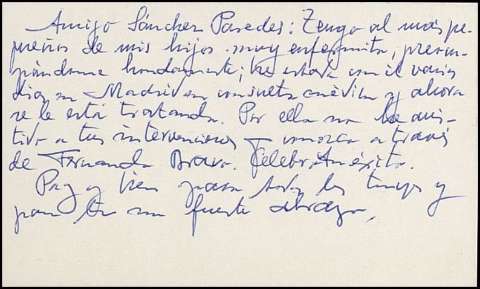 Amigo Sánchez Paredes: Tengo al más pe-
queños de mis hijos muy enfermito, preocu-
pándome hondamente; he estado con él varios
días en Madrid en consulta médica y ahora
se le está tratando. Por ello no he asis-
tido a tus intervenciones a través
de Fernando Bravo. Celebro éxito.
Paz y bien para todos los tuyos y
para ti un fuerte abrazo,